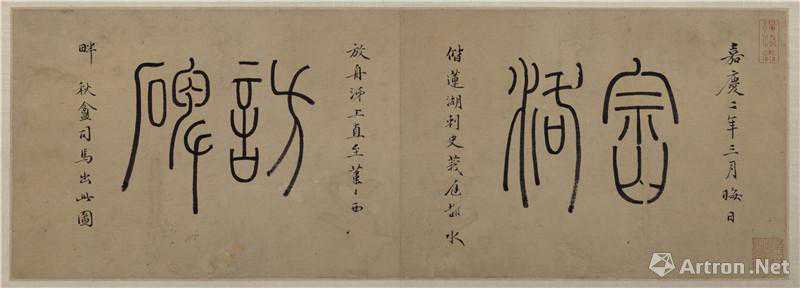 嘉慶二年三月晦日
崈洛
偕蓮湖刺史莪庭都水
放舟泲上直至西
訪碑
畔秋盦司馬出此圖
Artron.Net